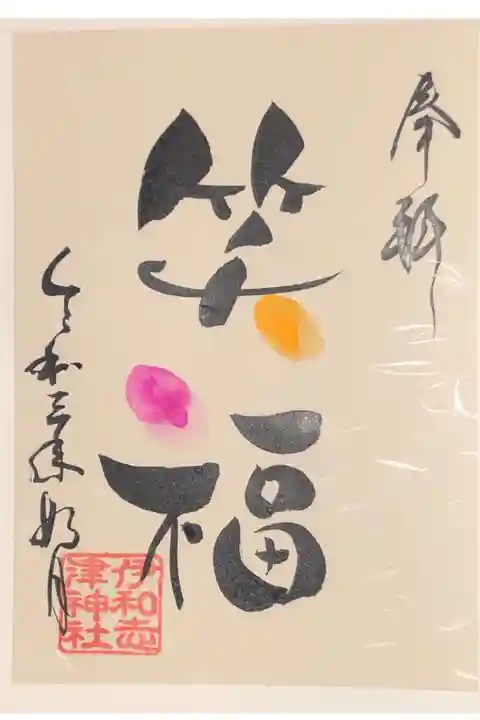 奉拝
笑福
令和三年如月
伊和志
津神社